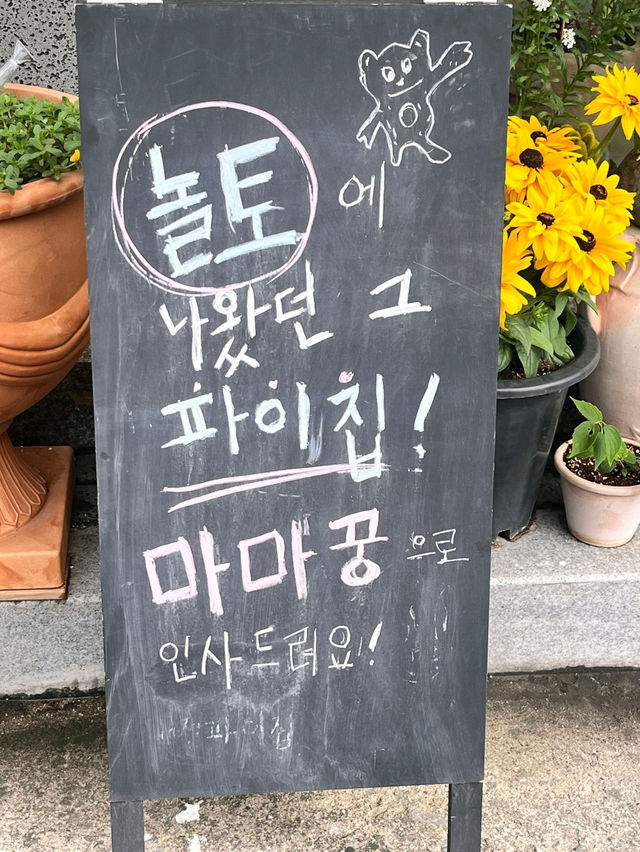 놀토에
나왔던 그
파이집!
마마꿍으로
인사드려요!
파이집